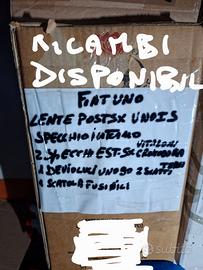 RICAMBI
DISPONIBIL
FIAT UNO
LENTE POST SX UNO IS
SPECCHIO INTERNO
2 SPECCHI EST. SX VITALONI
1 DEVIOLUCI UNO 90 2 SCATTI
1 SCATOLA FUSIBILI
subito